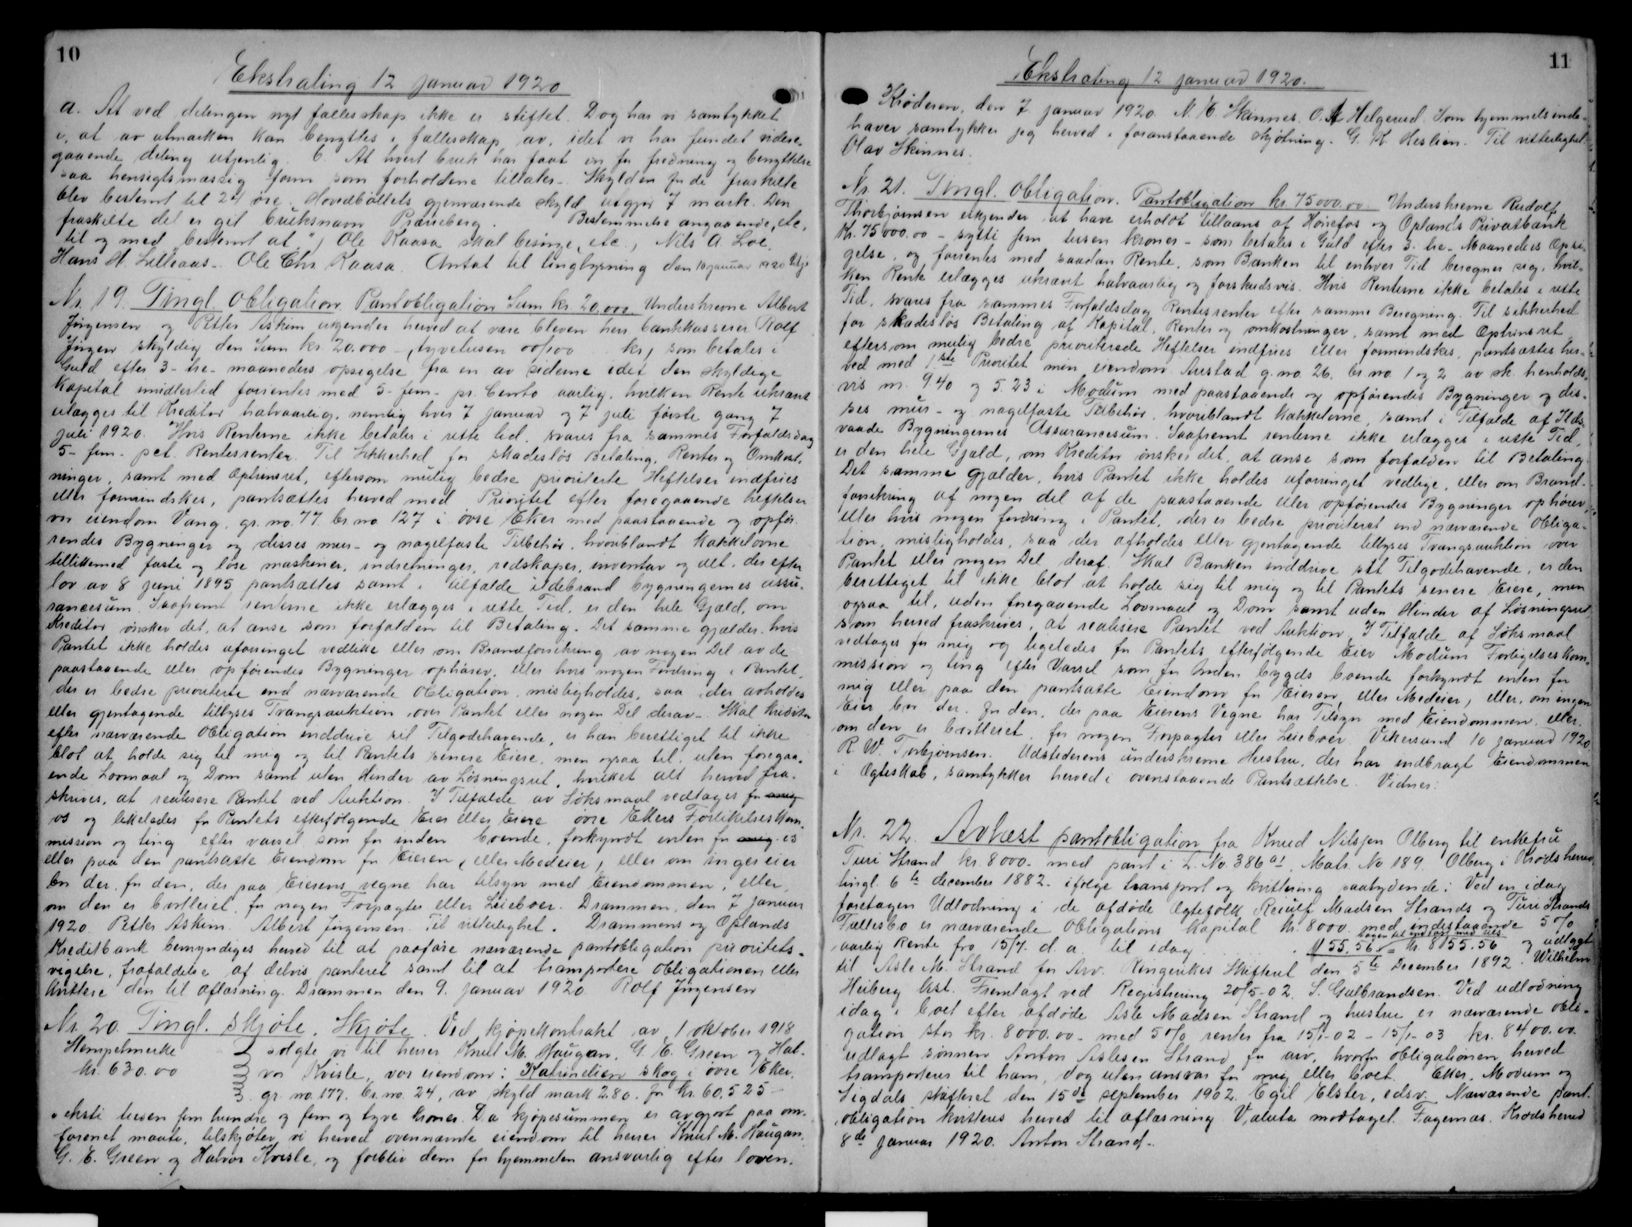 10
Ekstrating 12 januar 1920
a. At ved delingen nyt fællesskap ikke er stiftet. Dog har vi samtykket
i, at av utmarken kan benyttes i fællesskap, av, idet vi har fundet videre-
gaaende deling utjenlig. b. At hvert bruk har faat en for fredning og benyttelse
saa hensigtsmæssig form som forholdene tillater. Skylden for de fraskilte
blev bestemt til 24 øre. Hovedbøllets gjenværende skyld utgjør 7 mark. Den
fraskilte del er git bruksnavn Bareberg. Bestemmelse angaaende, etc,
til og med bestemt at, Ole Kaasa skal besørge, etc, Nils A. Loe,
Hans H. Lilleaas - Ole Chr. Kaasa. Antat til tinglysning den 10 januar 1920
Nr. 19. Tingl. Obligation Pantobligation Sum kr. 20.000 Underskrevne Albert
Jørgensen og Petter Askim erkjender herved at være bleven herr bankkasserer Rolf
Jørgen skyldig den Sum kr. 20.000 - tyvetusen 00/100 kr, som betales i
Guld efter 3-tre-maaneders opsigelse fra en av siderne idet den skyldige
Kapital imidlertid forrentes med 5-fem-pr. Cento aarlig, hvilken Rente ukrævet
erlægges til Kreditor halvaarlig, nemlig hver 7 januar og 7 juli første gang 7
juli 1920. Hvis Renterne ikke betales i rette tid, svares fra sammes Forfaldsdag
5-fem-pct. Rentesrenter. Til Sikkerhed for skadesløs Betaling, Renter og Omkost-
ninger, samt med Oprinsret, eftersom mulig bedre prioriterte Heftelser indfries
eller formindskes, pantsættes herved med Prioritet efter foregaaende heftelser
vor eiendom Vang, gr. no. 77 br. no 127 i øvre Eker med paastaaende og opfø-
rendes Bygninger og disses mur- og nagelfaste Tilbehør, hvoriblandt Kakkelovne
tillikemed faste og løse maskiner, indretninger, redskaper, inventar og alt, der efter
lov av 8 juni 1895 pantsættes samt i tilfælde ildebrand bygningernes assu-
rancesum. Saafremt renterne ikke erlægges i rette Tid, er den hele Gjæld, om
Kreditor ønsker det, at anse som forfalden til Betaling. Det samme gjælder, hvis
Pantet ikke holdes uforringet vedlike eller om Brandforsikring av nogen Del av de
paastaaende eller opførendes Bygninger ophører, eller hvis nogen Fordring i Pantet,
der er bedre prioriterte end nærværende Obligation, misligholdes, saa der avholdes
eller gjentagende tillyses Tvangsauktion over Pantet eller nogen Del derav. Skal Kreditor
efter nærværende Obligation inddrive sit Tilgodehavende, er han berettiget til ikke
blot at holde sig til mig og til Pantets senere Eiere, men ogsaa til, uten foregaa-
ende Lovmaal og Dom samt uten Hinder av Løsningsret, hvilket alt herved fra-
skrives, at realisere Pantet ved Auktion. I Tilfælde av Søksmaal vedtages for mig
os og likeledes for Pantets efterfølgende Eier eller Eiere øvre Ekers Forlikelseskom-
mission og ting efter varsel som for inden boende, forkyndt enten for mig os
eller paa den pantsatte Eiendom for Eieren, (eller Medeier), eller om ingen eier
bor der, for den, der paa Eierens vegne har tilsyn med Eiendommen, eller,
om den er bortleiet, for nogen Forpagter eller Leieboer. Drammen, den 7 januar
1920. Petter Askim. Albert Jørgensen. Til vitterlighet. Drammens og Oplands
Kreditbank bemyndiges herved til at paaføre nærværende pantobligation prioritets-
vigelse, frafaldelse af delvis panteret samt til at transportere obligationen eller
kvittere den til aflæsning. Drammen den 9. januar 1920 Rolf Jørgensen
Nr. 20. Tingl. skjøte. Skjøte. Ved kjøpekontrakt av 1 oktober 1918
Stempelmerke solgte vi til herrer Knut M. Haugan, G. E. Green og Hal-
kr. 630.00 vor Kvisle, vor eiendom: Katrindien skog i øvre Eker,
gr. no. 177, br. no. 24, av skyld mark 2.80, for kr. 60,525 -
seksti tusen fem hundre og fem og tyve kroner. Da kjøpesummen er avgjort paa om-
forenet maate, tilskjøter vi herved ovennævnte eiendom til herrer Knut M. Haugan,
G. E. Green og Halvor Kvisle, og forblir dem for hjemmelen ansvarlig efter loven.
11
Ekstrating 12 januar 1920.
Krøderen, den 7 januar 1920. N. C. Skinnes. O. A. Helgerud. Som hjemmelsinde-
haver samtykker jeg herved i foranstaaende skjøtning. G. K. Heslien. Til vitterlighet
Olav Skinnes.
Nr. 21. Tingl. Obligation. Pantobligation kr. 75000.00 Underskrevne Rudolf
Thorbjørnsen erkjender at have erholdt tillaans af Hønefos og Oplands Privatbank
Kr. 75000.00 - sytti fem tusen kroner - som betales i Guld efter 3-tre-Maaneders Opsi-
gelse, og forrentes med saadan Rente, som Banken til enhver Tid beregner sig, hvil-
ken Rente erlægges ukrævet halvaarlig og forskudsvis. Hvis Renterne ikke betales i rette
Tid, svares fra sammes Forfaldsdag Rentesrenter efter samme Beregning. Til sikkerhed
for skadesløs Betaling af Kapital, Renter og omkostninger, samt med Optrinsret
eftersom mulig bedre prioriterede Heftelser indfries eller formindskes, pantsættes her-
ved med 1ste Prioritet min eiendom Aurstad g. no. 26, br. no 1 og 2 av sk. henholds-
vis m. 9.40 og 5.23 i Modum med paastaaende og opførendes Bygninger og dis-
ses mur- og nagelfaste Tilbehør, hvoriblandt Kakkelovne, samt i Tilfælde af Ilds-
vaade Bygningernes Assurancesum. Saafremt renterne ikke erlægges i rette Tid,
er den hele Gjæld, om Kreditor ønsker det, at anse som forfalden til Betaling.
Det samme gjælder, hvis Pantet ikke holdes uforringet vedlige, eller om Brand-
forsikring af nogen del af de paastaaende eller opførendes Bygninger ophører
eller hvis nogen fordring i Pantet, der er bedre prioriteret end nærværende Obliga-
tion, misligholdes, saa der afholdes eller gjentagende tillyses Tvangsauktion over
Pantet eller nogen Del deraf. Skal Banken inddrive sit Tilgodehavende, er den
berettiget til ikke blot at holde sig til mig og til Pantets senere Eiere, men
ogsaa til, uden foregaaende Lovmaal og Dom samt uden Hinder af Løsningsret
som herved fraskrives, at realisere Pantet ved Auktion. I Tilfælde af Søksmaal
vedtages for mig og ligeledes for Pantets efterfølgende Eier Modum Forligelseskom-
mission og ting efter Varsel som for Inden bygds boende forkyndt enten for
mig eller paa den pantsatte Eiendom for Eieren, eller Medeier, eller, om ingen
Eier bor der, for den, der paa Eierens Vegne har Tilsyn med Eiendommen, eller,
om den er bortleiet, for nogen Forpagter eller Leieboer. Vikersund 10 januar 1920
R. W. Torbjørnsen. Udstederens underskrevne Hustru, der har indbragt Eiendommen
i Egteskab, samtykker herved i ovenstaaende Pantsættelse. Vidner.
Nr. 22. Avlæst pantobligation fra Knud Nilssen Olberg til enkefru
Turi Strand kr. 8000. med pant i L. No 386a1, Matr. No 189, Olberg i Krødsherred
tingl. 6te december 1882. ifølge transport og kvittering saalydende: Ved en idag
foretagen Udlodning i de afdøde Egtefolk Reiulf Madsen Strands og Turi Strands
Fællesbo er nærværende Obligations Kapital kr. 8000. med indestaaende 5%
aarlig Rente fra 15/7. d. a. til idag 155.56 kr. 8155.56 og udlagt
til Asle M. Strand for Arv. Ringerikes Skifteret den 5te December 1892. Wilhelm
Heiberg kst. Fremlagt ved Registrering 20/5-02. S. Gulbrandsen. Ved udlodning
idag i boet efter afdøde Asle Madsen Strand og hustru er nærværende obli-
gation stor kr. 8000.00 - med 5% renter fra 15/1-02 - 15/1-03 kr. 8400.00
udlagt sønnen Anton Aslesen Strand for arv, hvorfor obligationen herved
transporteres til ham, dog uten ansvar for mig eller boet. Eker, Modum og
Sigdals skifteret den 15de september 1902. Egil Elster, edsv. Nærværende pant-
obligation kvitteres herved til aflæsning. Valuta modtaget. Fagernæs. Krødsherred
8de januar 1920. Anton Strand.